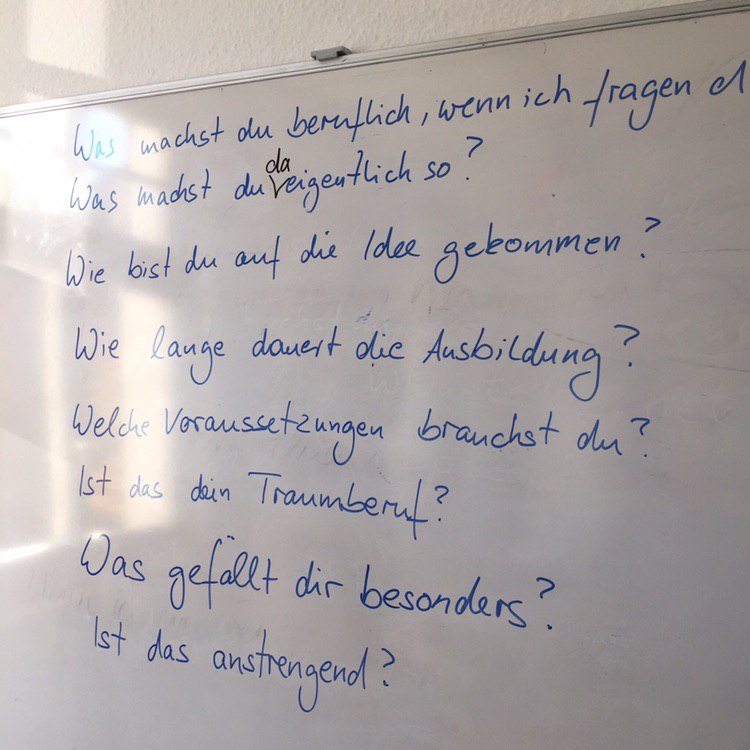 Was machst du beruflich, wenn ich fragen d
Was machst du da eigentlich so?
Wie bist du auf die Idee gekommen?
Wie lange dauert die Ausbildung?
Welche Voraussetzungen brauchst du?
Ist das dein Traumberuf?
Was gefällt dir besonders?
Ist das anstrengend?